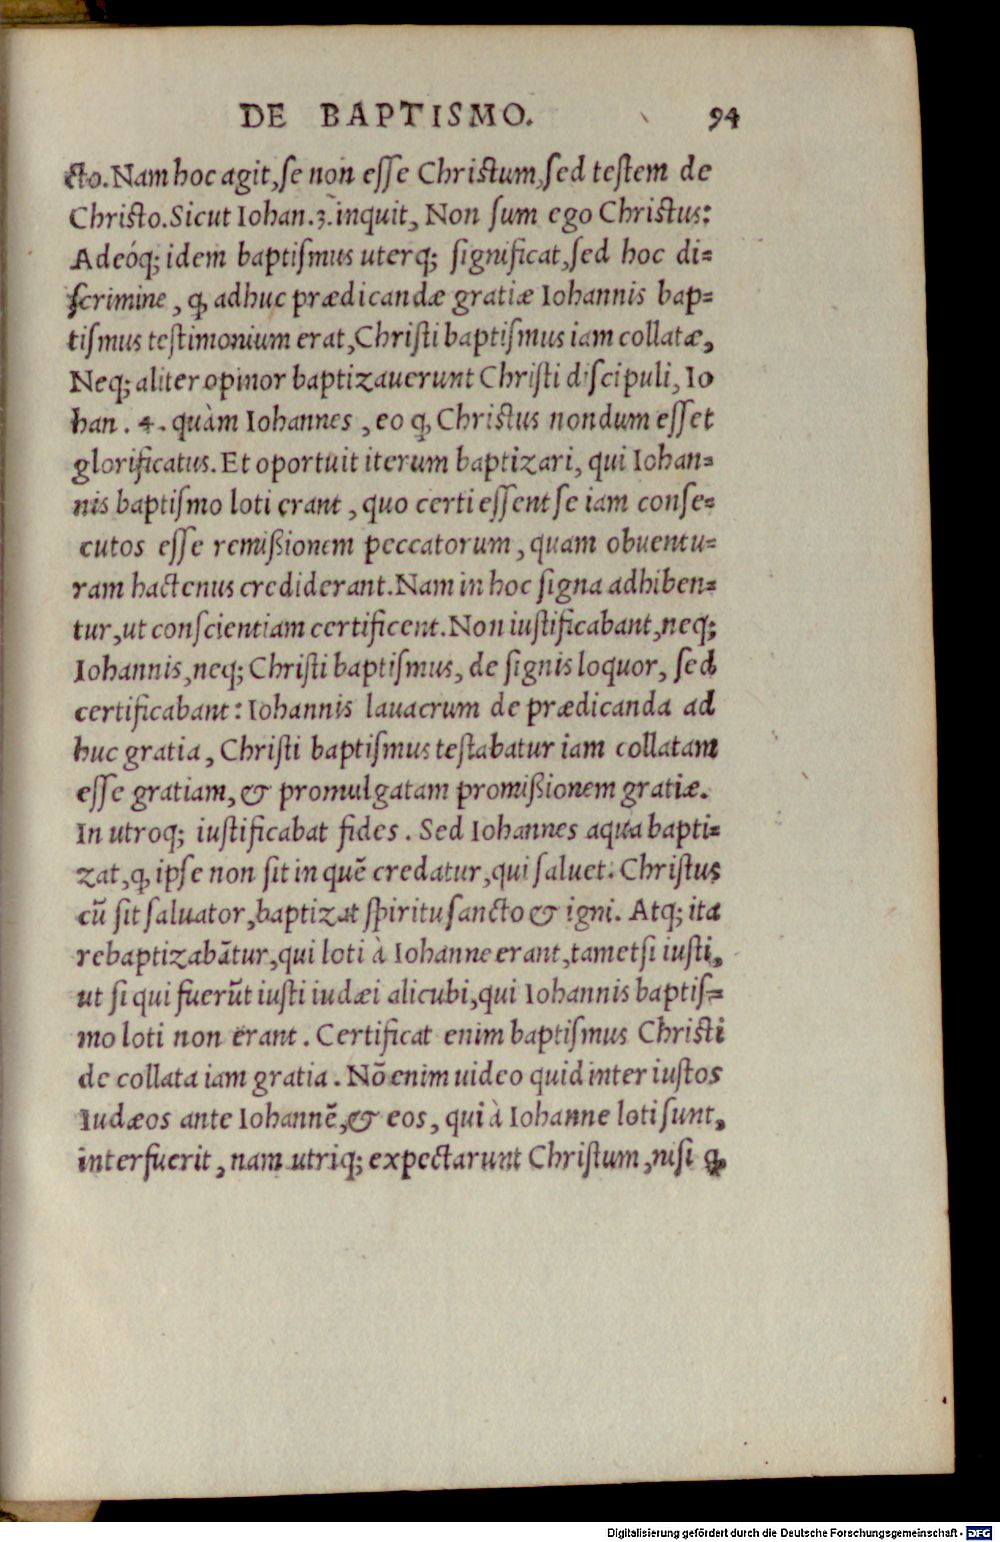 DE BAPTISMO. 94
cto. Nam hoc agit, ſe non eſſe Chriſtum, ſed teſtem de
Chriſto. Sicut Iohan. 3. inquit, Non ſum ego Chriſtus:
Adeóq; idem baptiſmus uterq; ſignificat, ſed hoc di=
ſcrimine, ꝙ adhuc prædicandæ gratiæ Iohannis bap=
tiſmus teſtimonium erat, Chriſti baptiſmus iam collatæ,
Neq; aliter opinor baptizauerunt Chriſti diſcipuli, Io
han. 4. quàm Iohannes, eo ꝙ Chriſtus nondum eſſet
glorificatus. Et oportuit iterum baptizari, qui Iohan=
nis baptiſmo loti erant, quo certi eſſent ſe iam conſe=
cutos eſſe remißionem peccatorum, quam obuentu=
ram hactenus crediderant. Nam in hoc ſigna adhiben=
tur, ut conſcientiam certificent. Non iuſtificabant, neq;
Iohannis, neq; Chriſti baptiſmus, de ſignis loquor, ſed
certificabant: Iohannis lauacrum de prædicanda ad
huc gratia, Chriſti baptiſmus teſtabatur iam collatam
eſſe gratiam, & promulgatam promißionem gratiæ.
In utroq; iuſtificabat fides. Sed Iohannes aqua bapti=
zat, ꝙ ipſe non ſit in quē credatur, qui ſaluet. Chriſtus
cū ſit ſaluator, baptizat ſpiritu ſancto & igni. Atq; ita
rebaptizabātur, qui loti à Iohanne erant, tametſi iuſti,
ut ſi qui fuerūt iuſti iudæi alicubi, qui Iohannis baptiſ=
mo loti non erant. Certificat enim baptiſmus Chriſti
de collata iam gratia. Nō enim uideo quid inter iuſtos
Iudæos ante Iohannē, & eos, qui à Iohanne loti ſunt,
interfuerit, nam utriq; expectarunt Chriſtum, niſi ꝙ
Digitalisierung gefördert durch die Deutsche Forschungsgemeinschaft - DFG